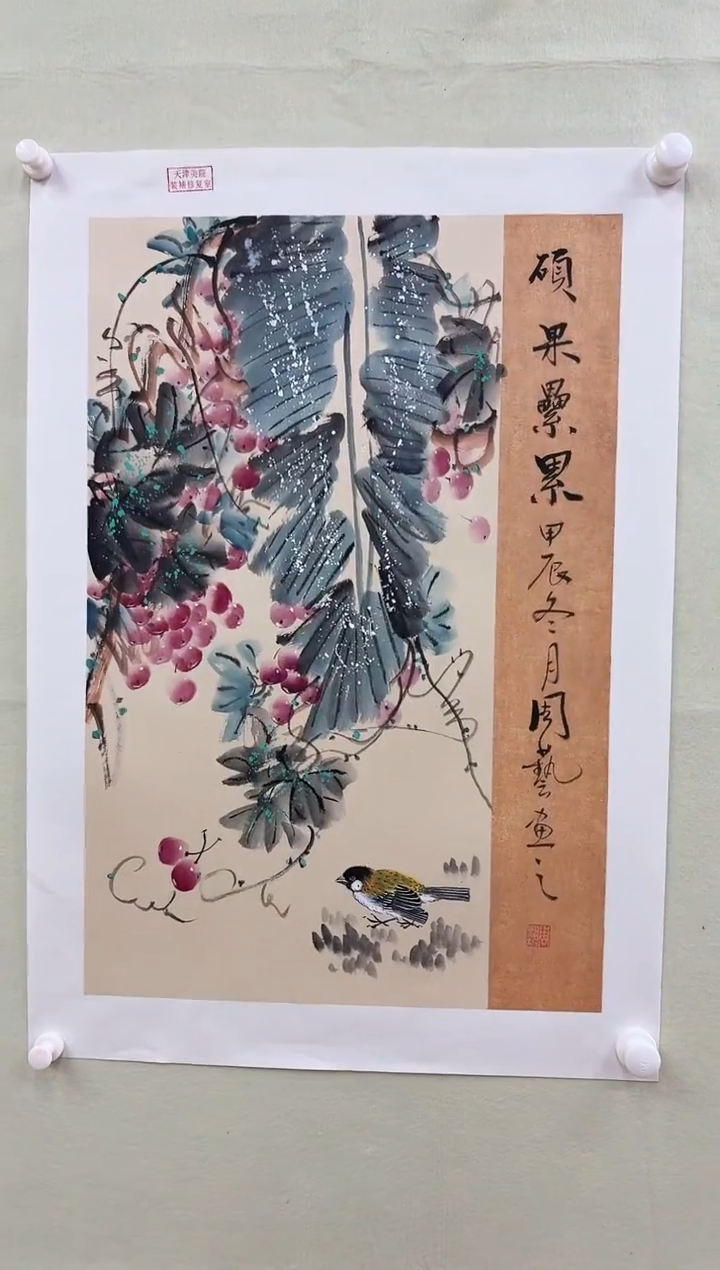 天津美院
装裱修复室
硕果纍累甲辰冬月周藝画之